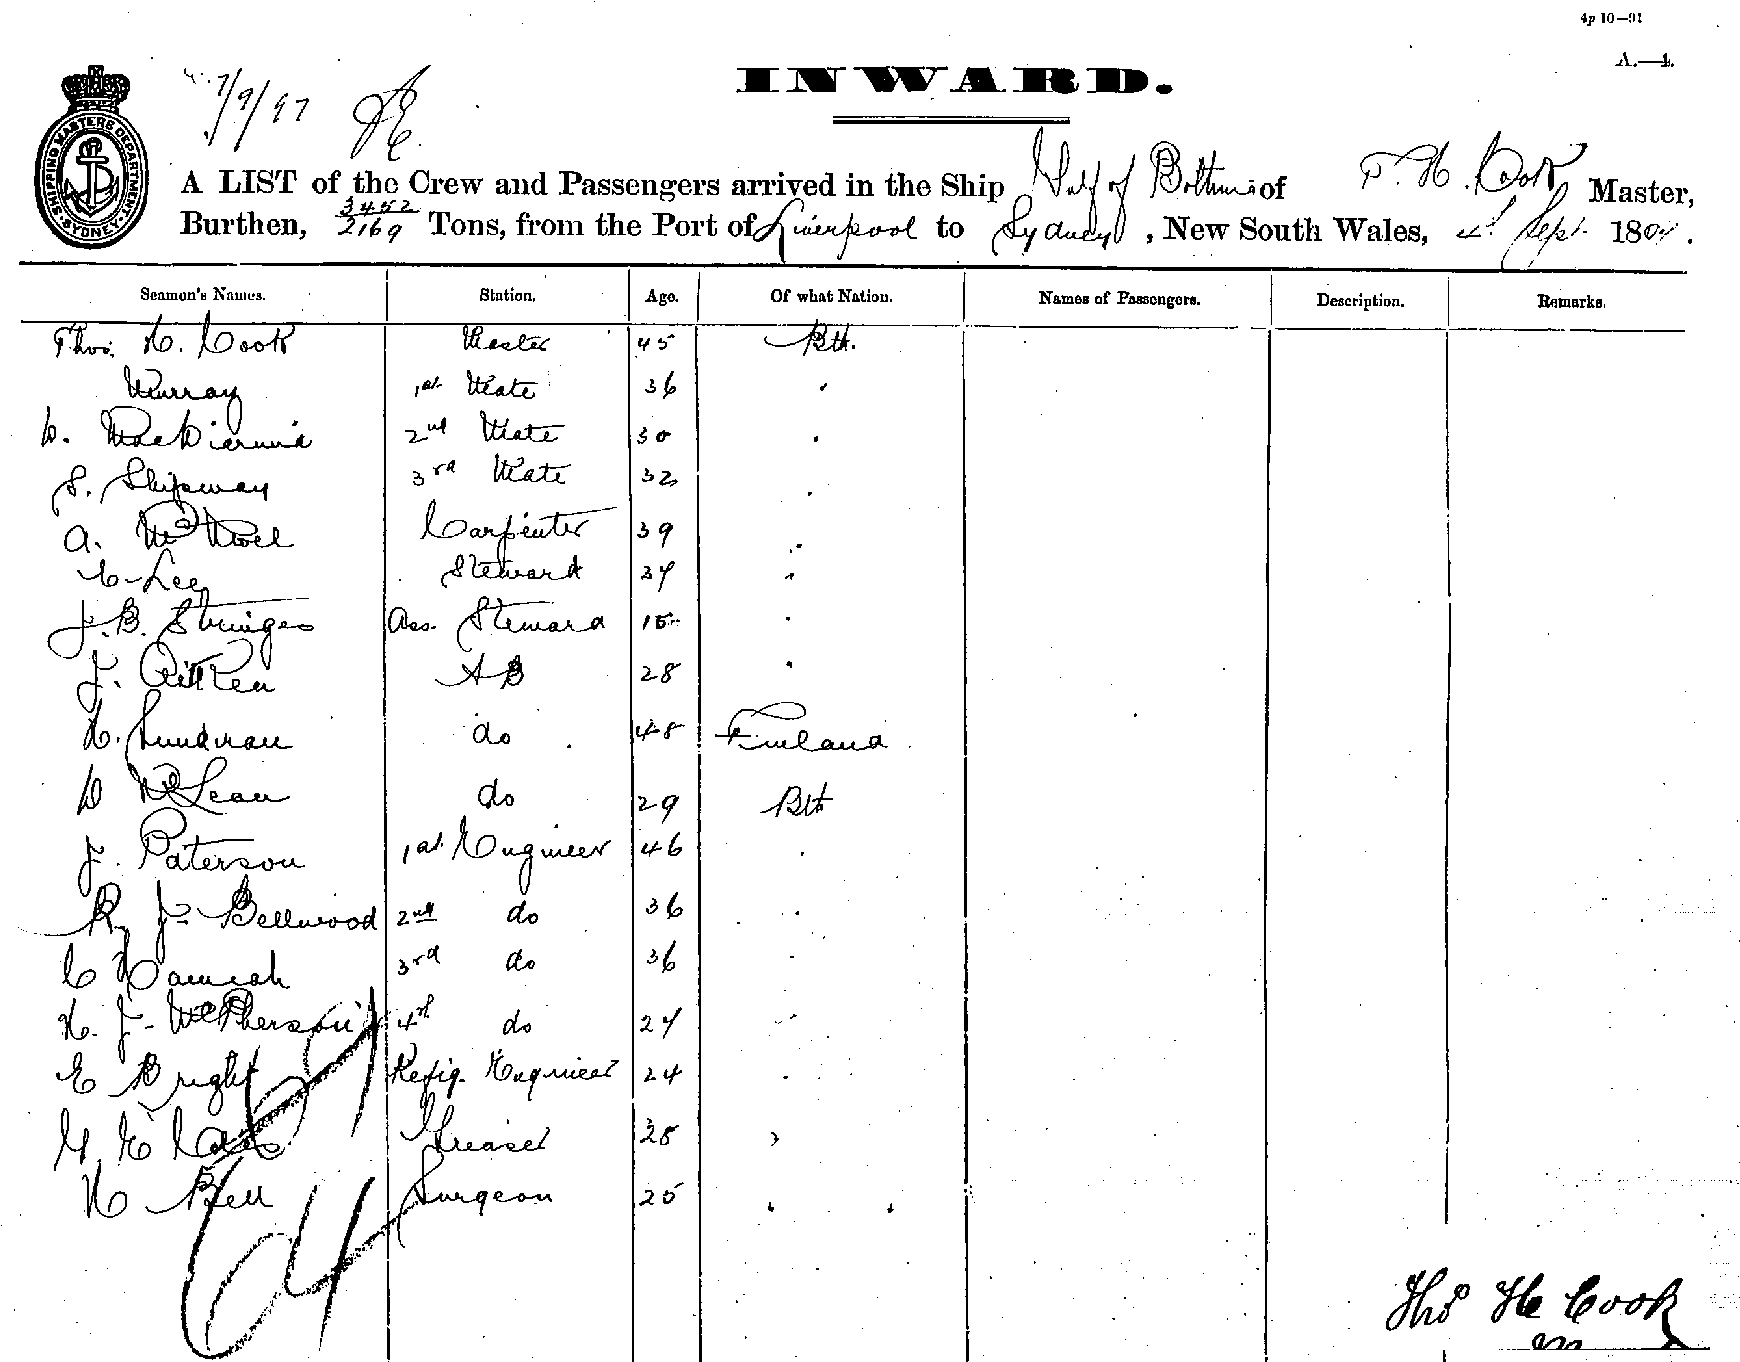 4p 10—91
A.—4.
INWARD.
7/9/97
SHIPPING MASTERS DEPARTMENT SYDNEY
A LIST of the Crew and Passengers arrived in the Ship Gulf of Bothnia of T. H. Cook Master,
Burthen, 3452/2169 Tons, from the Port of Liverpool to Sydney, New South Wales, 4th Sept. 1897.
Seamen's Names. Station. Age. Of what Nation. Names of Passengers. Description. Remarks.
Thos. H. Cook Master 45 Bth.
Murray 1st Mate 36 "
D. MacDiarmid 2nd Mate 30 "
S. Shipway 3rd Mate 32 "
A. McNeel Carpenter 39 "
C. Lee Steward 37 "
J. B. Stringer Ass. Steward 18 "
J. Aitken AB 28 "
H. do 48 Finland
D McLean do 29 Bth
J. Paterson 1st Engineer 46 "
R. J. Bellwood 2nd do 36 "
C Hannah 3rd do 36 "
H. J. McPherson 4th do 27 "
E Bright Refrig. Engineer 24 "
G E Greaser 28 "
H Bell Surgeon 25 "
64
Thos H Cook